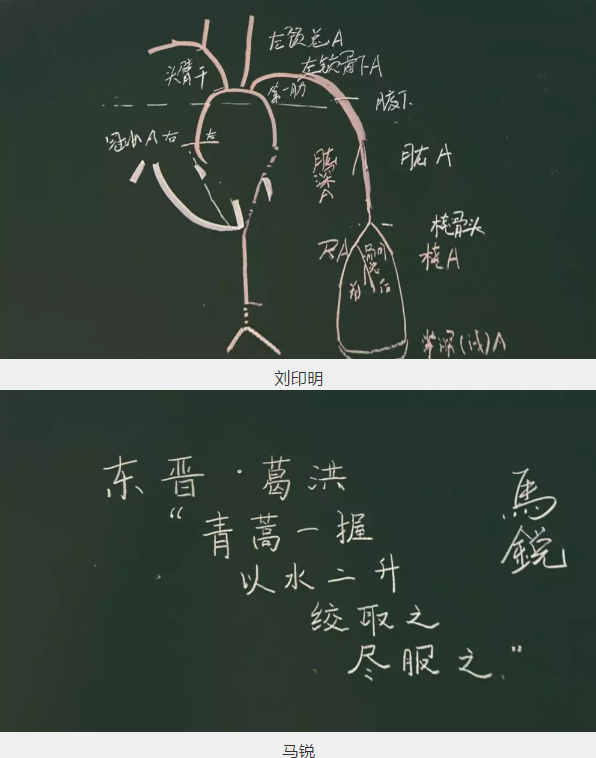 左颈总A
左锁骨下A
头臂干
第一肋
腋下
冠状A右
左
肱A
肱深A
桡骨头
尺A
桡A
骨间总
前
后
掌深(浅)A
刘印明
东晋·葛洪
“青蒿一握
以水二升
绞取之
尽服之”
馬鋭
马锐